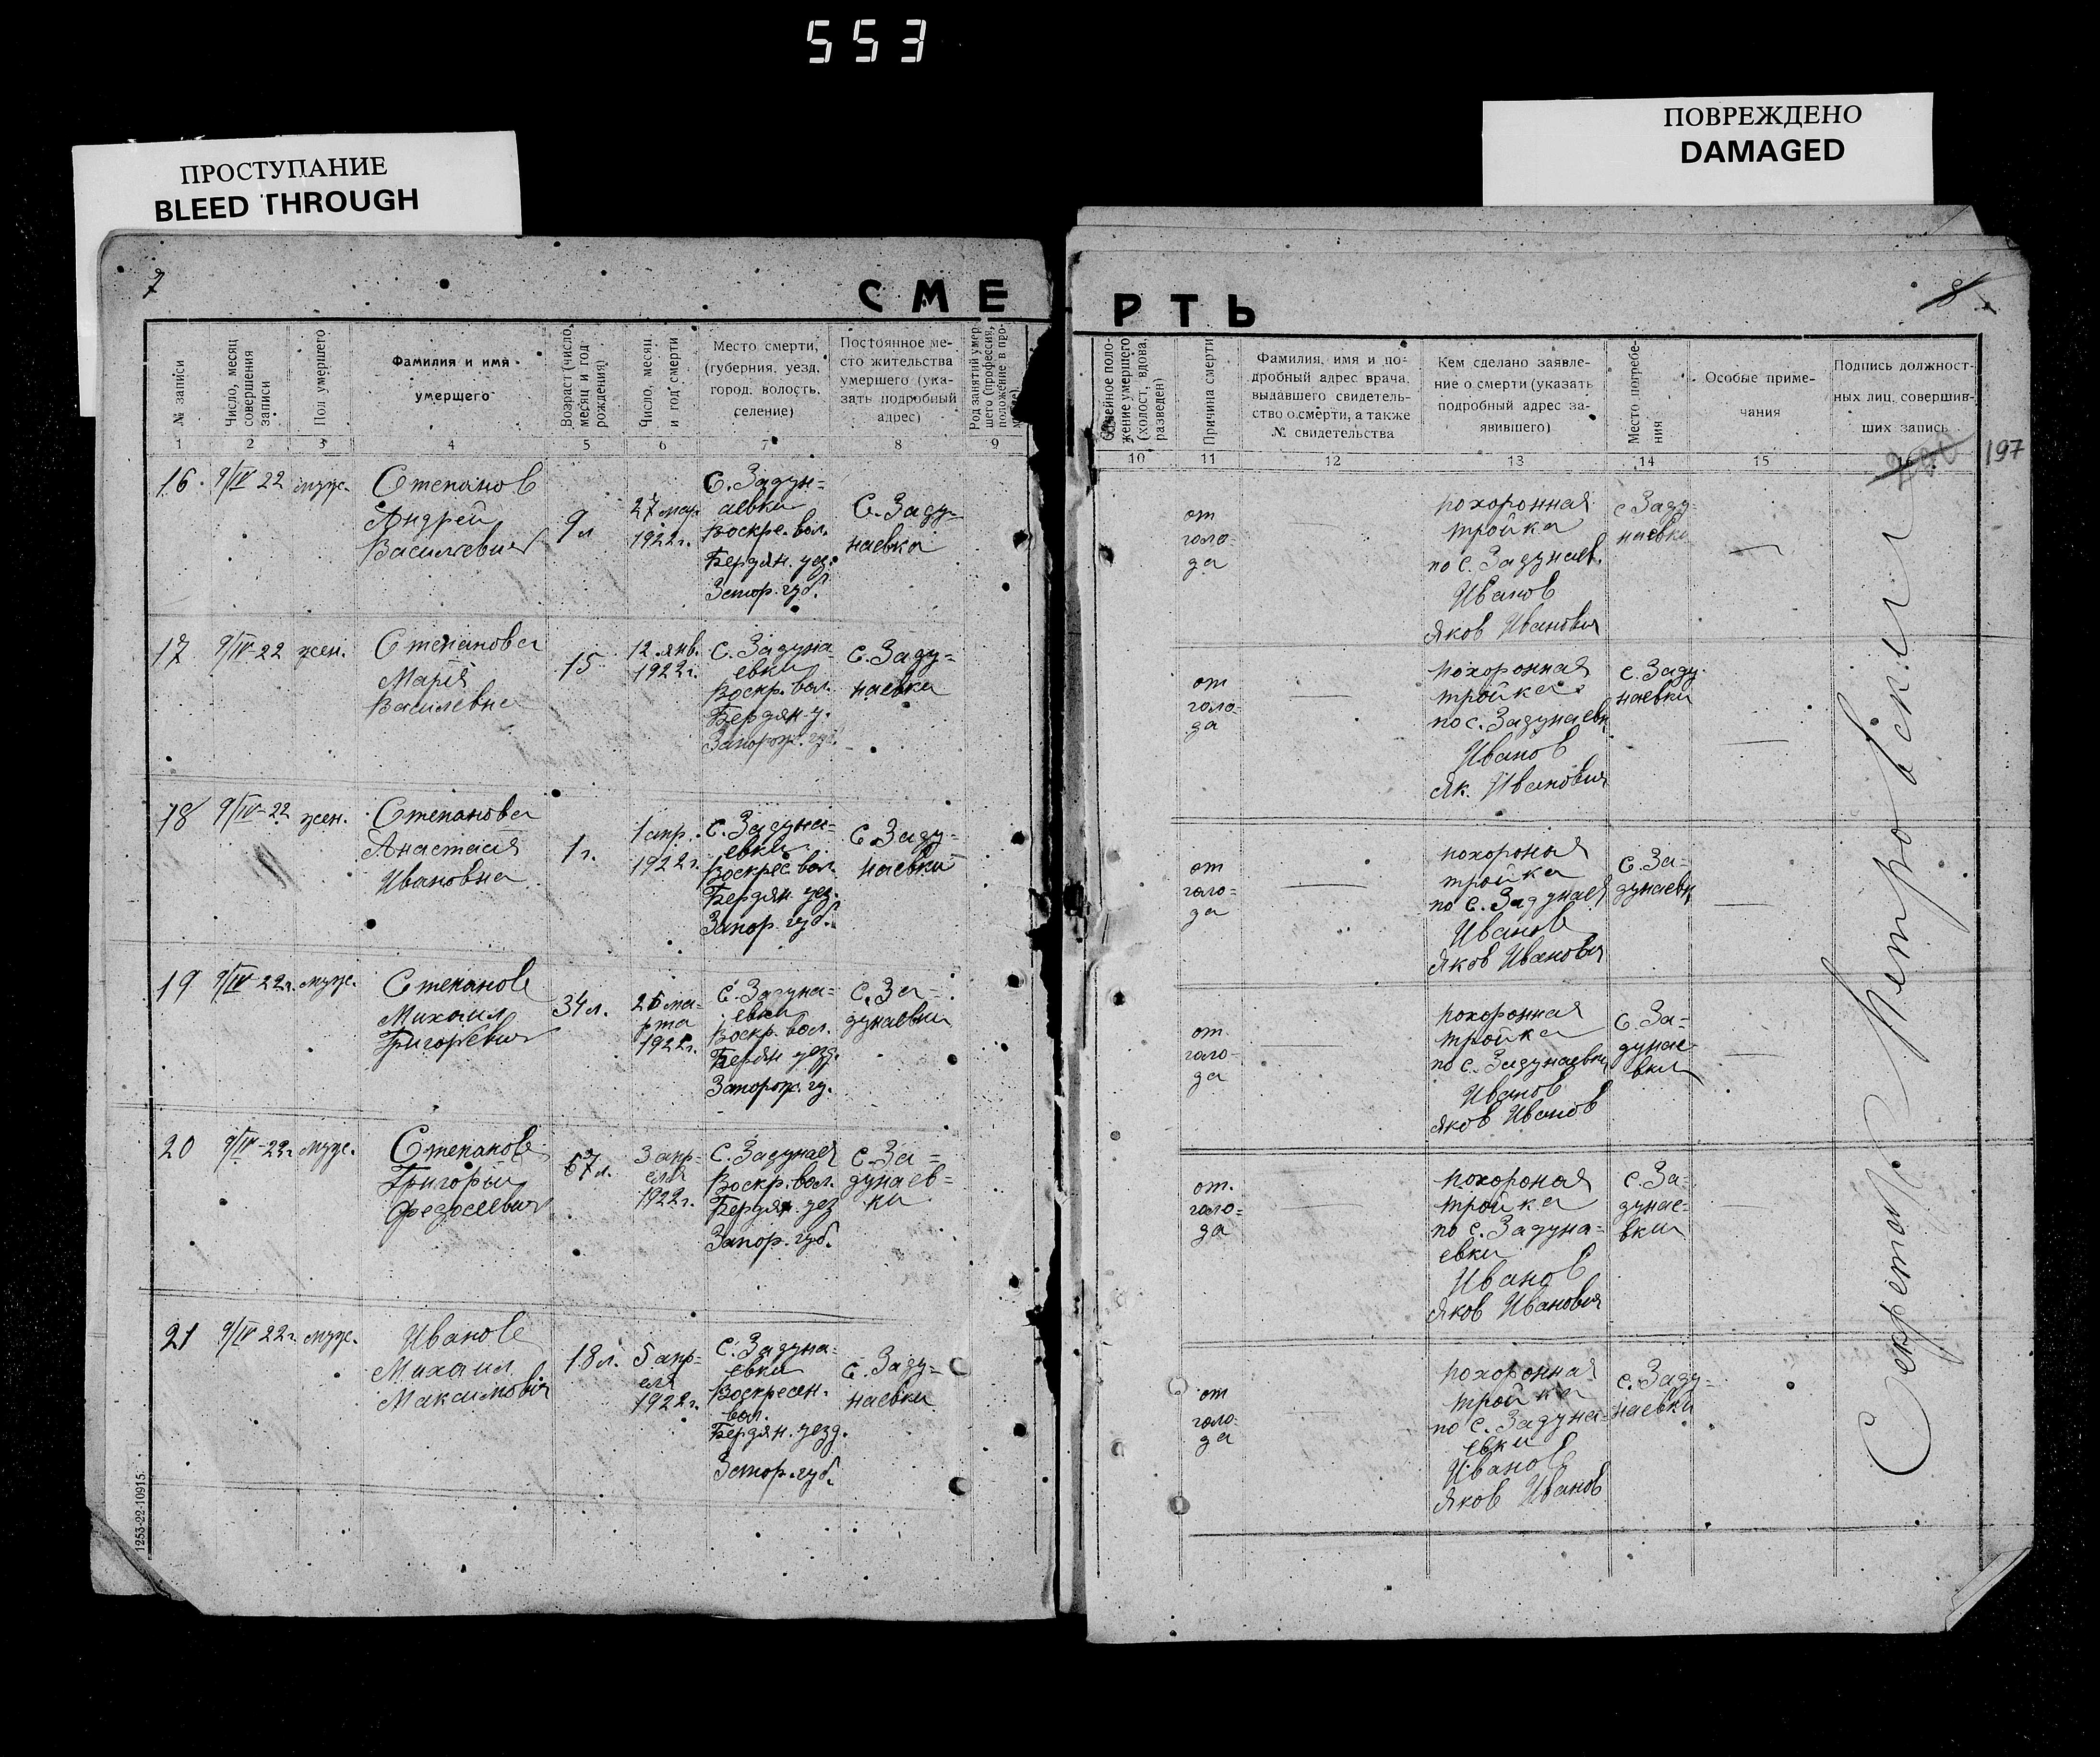 553
ПРОСТУПАНИЕ
BLEED THROUGH
ПОВРЕЖДЕНО
DAMAGED
7
8
СМЕ
РТЬ
№ записи
Число, месяц
совершения
записи
Пол умершего
Фамилия и имя
умершего
Возраст (число,
месяц и год
рождения)
Число, месяц
и год смерти
Место смерти,
(губерния, уезд,
город, волость,
селение)
Постоянное ме-
сто жительства
умершего (ука-
зать подробный
адрес)
Род занятий умер
шего (профессия,
положение в про-
1 2 3 4 5 6 7 8 9
Семейное поло-
жение умершего
(холост, вдова,
разведен)
Причина смерти
Фамилия, имя и по-
дробный адрес врача,
выдавшего свидетель-
ство о смерти, а также
№ свидетельства
Кем сделано заявле-
ние о смерти (указать
подробный адрес за-
явившего)
Место погребе-
ния
Особые приме-
чания
Подпись должност-
ных лиц, совершив-
ших запись
10 11 12 13 14 15
200
197
16. 9/IV 22 муж.
Степанов
Андрей
Васильевич
9 л
27 мар
1922 г.
С. Задун=
аевки
Воскре. вол.
Бердян. уез.
Запор. губ.
С. Заду=
наевка
от
голо-
да
похоронная
тройка
по с. Задунаев.
Иванов
Яков Иванович
с Заду-
наевка
17 9/IV-22 жен.
Степанова
Марія
Васильевна
15
12 янв.
1922 г.
С. Задуна-
евки
Воскр. вол.
Бердян. у.
Запорож. губ.
С. Заду=
наевка
от
голо-
да
похоронная
тройка
по с. Задунаевк
Иванов
Як. Иванович
с. Заду-
наевки
18 9/IV-22 жен.
Степанова
Анастасія
Ивановна
1 г.
1 апр.
1922 г.
С. Задуна=
евки
Воскрес вол.
Бердян. уез.
Запор. губ.
С Заду=
наевки
от
голо=
да
похороная
тройка
по с. Задунаев
Иванов
Яков Иванович
С. За-
дунаевк
19 9/IV 22г. муж.
Степанов
Михаил
Григорьевич
34 л.
25 ма-
рта
1922 г.
С. Задуна=
евки
Воскр. вол.
Бердян уезд.
Запорож. гу.
С. За-
дунаевки
от
голо-
да
похоронная
тройка
по с. Задунаевки
Иванов
Яков Иванов
С. За=
дунае
вки
20 9/IV-22г муж.
Степанов
Григорій
Федосеевич
67 л.
3 апр-
еля
1922 г.
С. Задунаев
Воскр. вол.
Бердян уез
Запор. губ.
С. За=
дунаев=
ки
от.
голо=
да
похороная
тройка
по с. Задуна=
евки
Иванов
Яков Иванович
с. За=
дунае=
вки
21 9/IV 22г. муж.
Иванов
Михаил
Максимович
18 л.
5 апр-
еля
1922 г.
С. Задуна-
евки
Воскресен.
вол.
Бердян. уезд.
Запор. губ.
С. Заду=
наевки
от
голо-
да
похоронная
тройка
по с. Задуна-
евки
Иванов
Яков Иванов
с. Заду=
наевки
Секретарь Петровский
1253-22-10915.